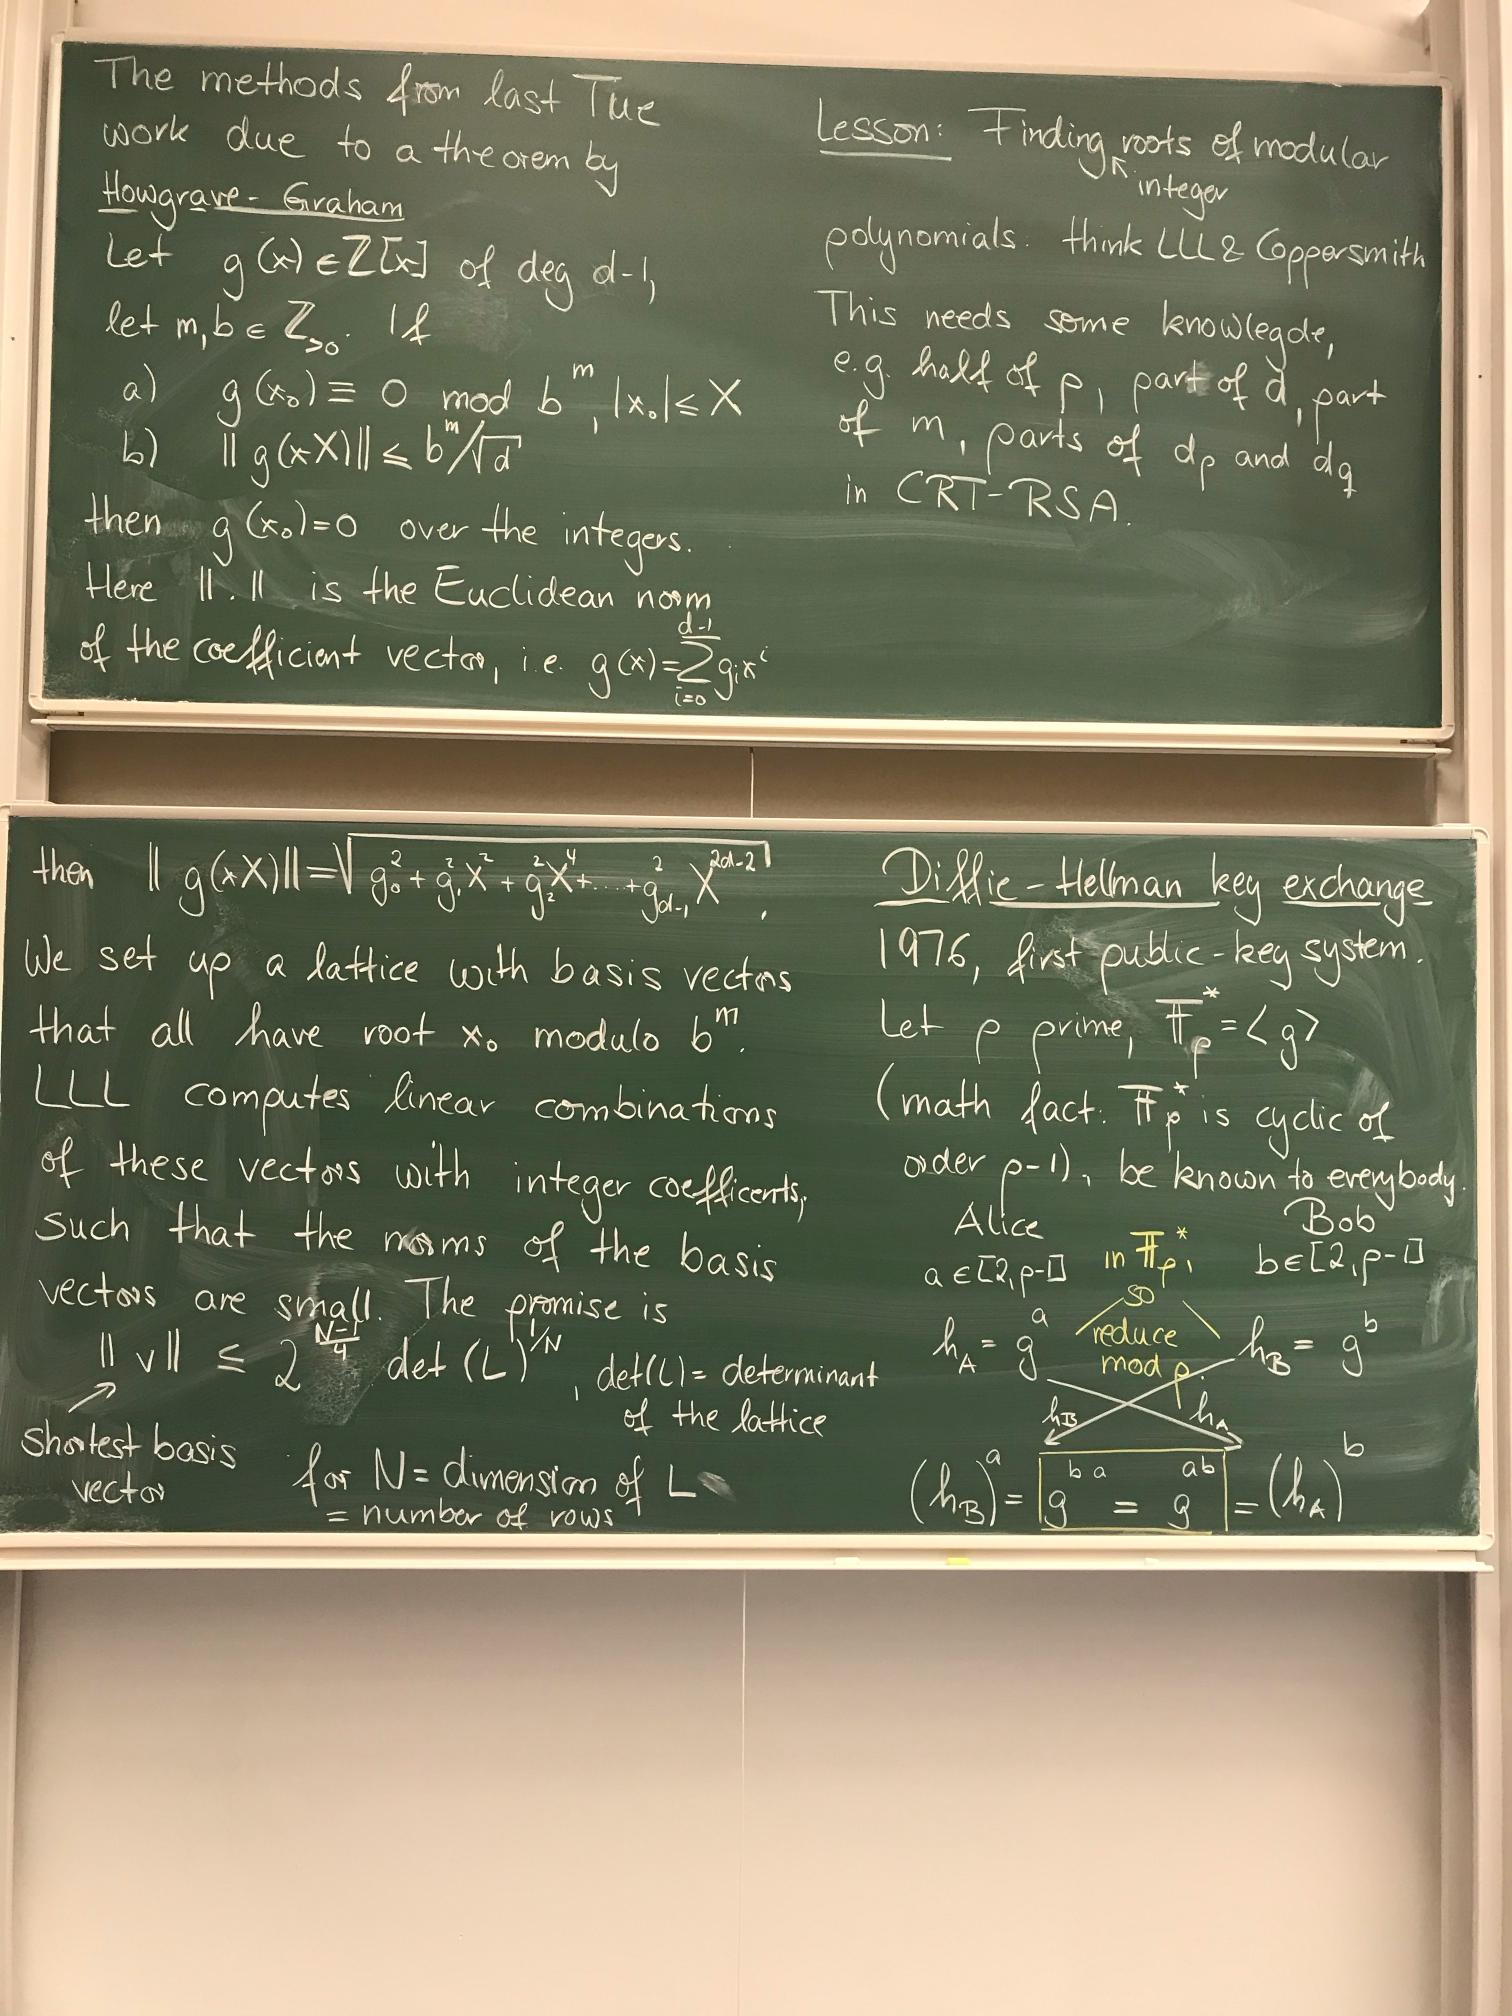 The methods from last Tue
work due to a theorem by
Howgrave-Graham
Let g(x) ∈ ℤ[x] of deg d-1,
let m, b ∈ ℤ_{>0}. If
a) g(x₀) ≡ 0 mod b^m, |x₀| ≤ X
b) ||g(xX)|| ≤ b^m/√d
then g(x₀)=0 over the integers.
Here ||.|| is the Euclidean norm
of the coefficient vector, i.e. g(x)=∑_{i=0}^{d-1} g_i x^i
Lesson: Finding roots of modular
integer
polynomials: think LLL & Coppersmith
This needs some knowlegde,
e.g. half of p, part of d, part
of m, parts of d_p and d_q
in CRT-RSA.
then ||g(xX)||=√(g₀²+g₁²X²+g₂²X⁴+...+g_{d-1}²X^{2d-2}).
We set up a lattice with basis vectors
that all have root x₀ modulo b^m.
LLL computes linear combinations
of these vectors with integer coefficents,
such that the norms of the basis
vectors are small. The promise is
||v|| ≤ 2^{(N-1)/4} det(L)^{1/N}, det(L)= determinant
of the lattice
shortest basis
vector
for N= dimension of L
= number of rows
Diffie-Hellman key exchange
1976, first public-key system.
Let p prime, 𝔽_p^*=<g>
(math fact: 𝔽_p^* is cyclic of
order p-1), be known to everybody.
Alice Bob
a∈[2,p-1] in 𝔽_p^*, b∈[2,p-1]
so
h_A = g^a reduce h_B = g^b
mod p.
h_B h_A
(h_B)^a = g^{ba} = g^{ab} = (h_A)^b